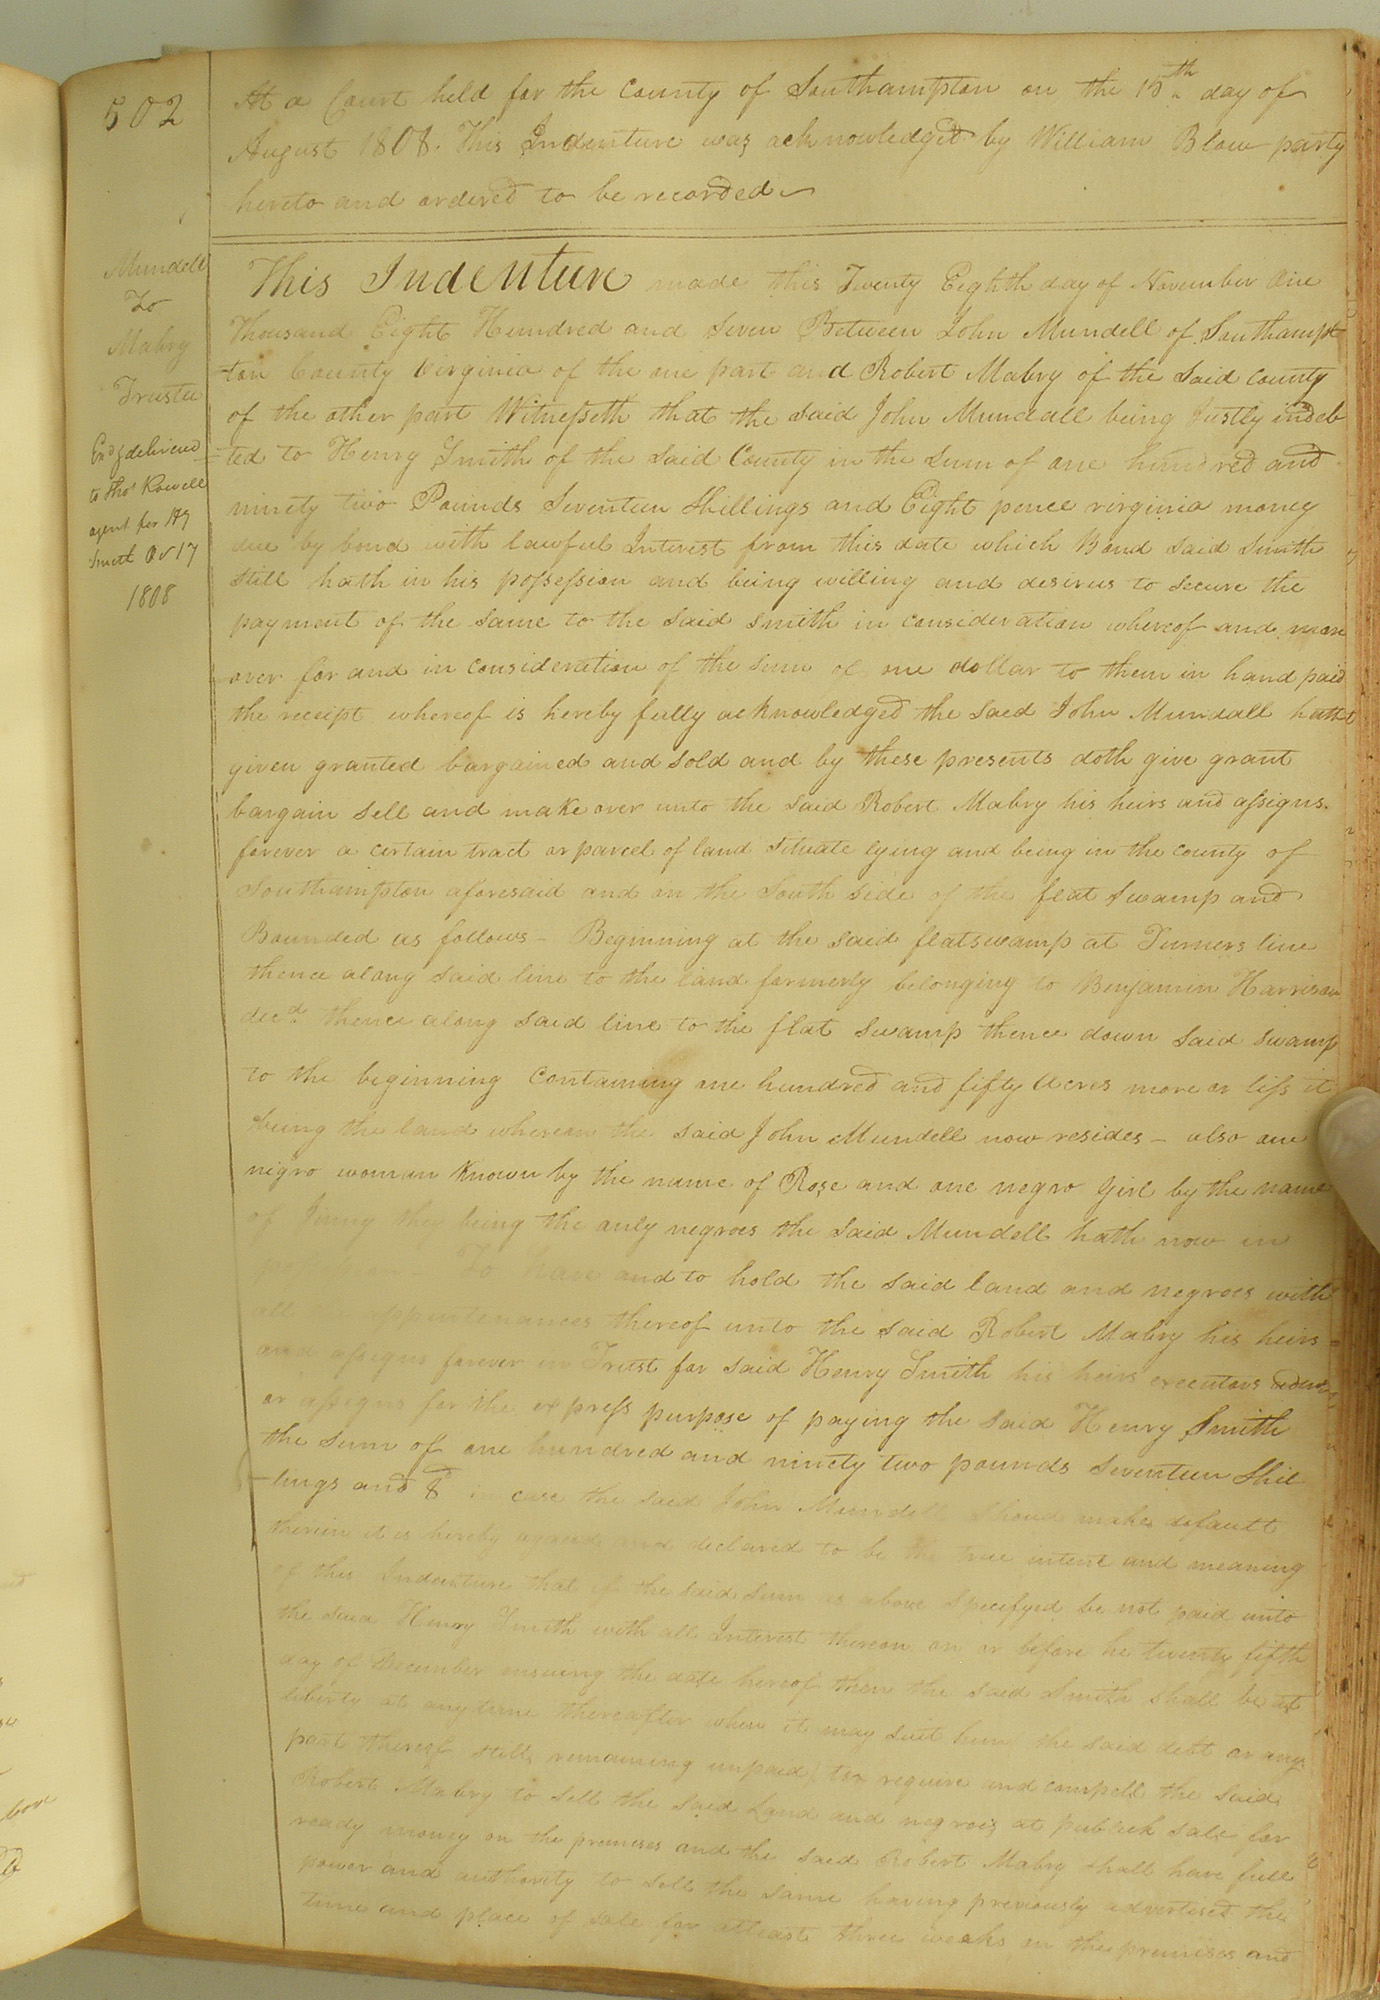 502
At a Court held for the County of Southampton on the 15th day of
August 1808. This Indenture was acknowledged by William Blow party
hereto and ordered to be recorded
Mundell
To
Mabry
Trustee
Exd & delivered
to Thos Rowell
agent for Hy
Smith Or 17
1808
This Indenture made this Twenty Eighth day of November One
Thousand Eight Hundred and Seven Between John Mundell of Southamp
ton County Virginia of the one part and Robert Mabry of the said county
of the other part Witnesseth that the said John Mundall being Justly indeb
ted to Henry Smith of the said County in the Sum of one hundred and
ninety two Pounds Seventeen Shillings and Eight pence virginia money
due by bond with lawful Interest from this date which Bond said Smith
still hath in his possession and being willing and desirus to secure the
payment of the same to the said smith in consideration whereof and more
over for and in consideration of the sum of one dollar to them in hand paid
the receipt whereof is hereby fully acknowledged the said John Mundall hath
given granted bargained and sold and by these presents doth give grant
bargain sell and make over unto the said Robert Mabry his heirs and assigns
forever a certain tract or parcel of land situate lying and being in the county of
Southampton aforesaid and on the South side of the flat swamp and
Bounded as follows - Beginning at the said flat swamp at Turners line
thence along said line to the land formerly belonging to Benjamin Harrison
decd thence along said line to the flat swamp thence down said swamp
to the beginning Containing one hundred and fifty Acres more or less it
being the land whereon the said John Mundell now resides - also one
negro woman known by the name of Rose and one negro Girl by the name
of Jinny they being the only negroes the said Mundell hath now in
To Have and to hold the said land and negroes with
all appurtenances thereof unto the said Robert Mabry his heirs
and assigns forever in Trust for said Henry Smith his heirs executors admrs
or assigns for the express purpose of paying the said Henry Smith
the sum of one hundred and ninety two pounds seventeen Shil
lings and 8d in case the said John Mundell shoud make default
therein it is hereby agreed and declared to be the true intent and meaning
of this Indenture that if the said sum as above specifyed be not paid unto
the said Henry Smith with all Interest thereon on or before he twenty fifth
day of December ensuing the date hereof then the said Smith shall be at
liberty at any time thereafter when it may suit him the said debt or any
part thereof still remaining unpaid to require and compell the said
Robert Mabry to sell the said Land and negroes at publick sale for
ready money on the premises and the said Robert Mabry shall have full
power and authority to sell the same having previously advertised the
time and place of sale for atleast three weeks on the premises and